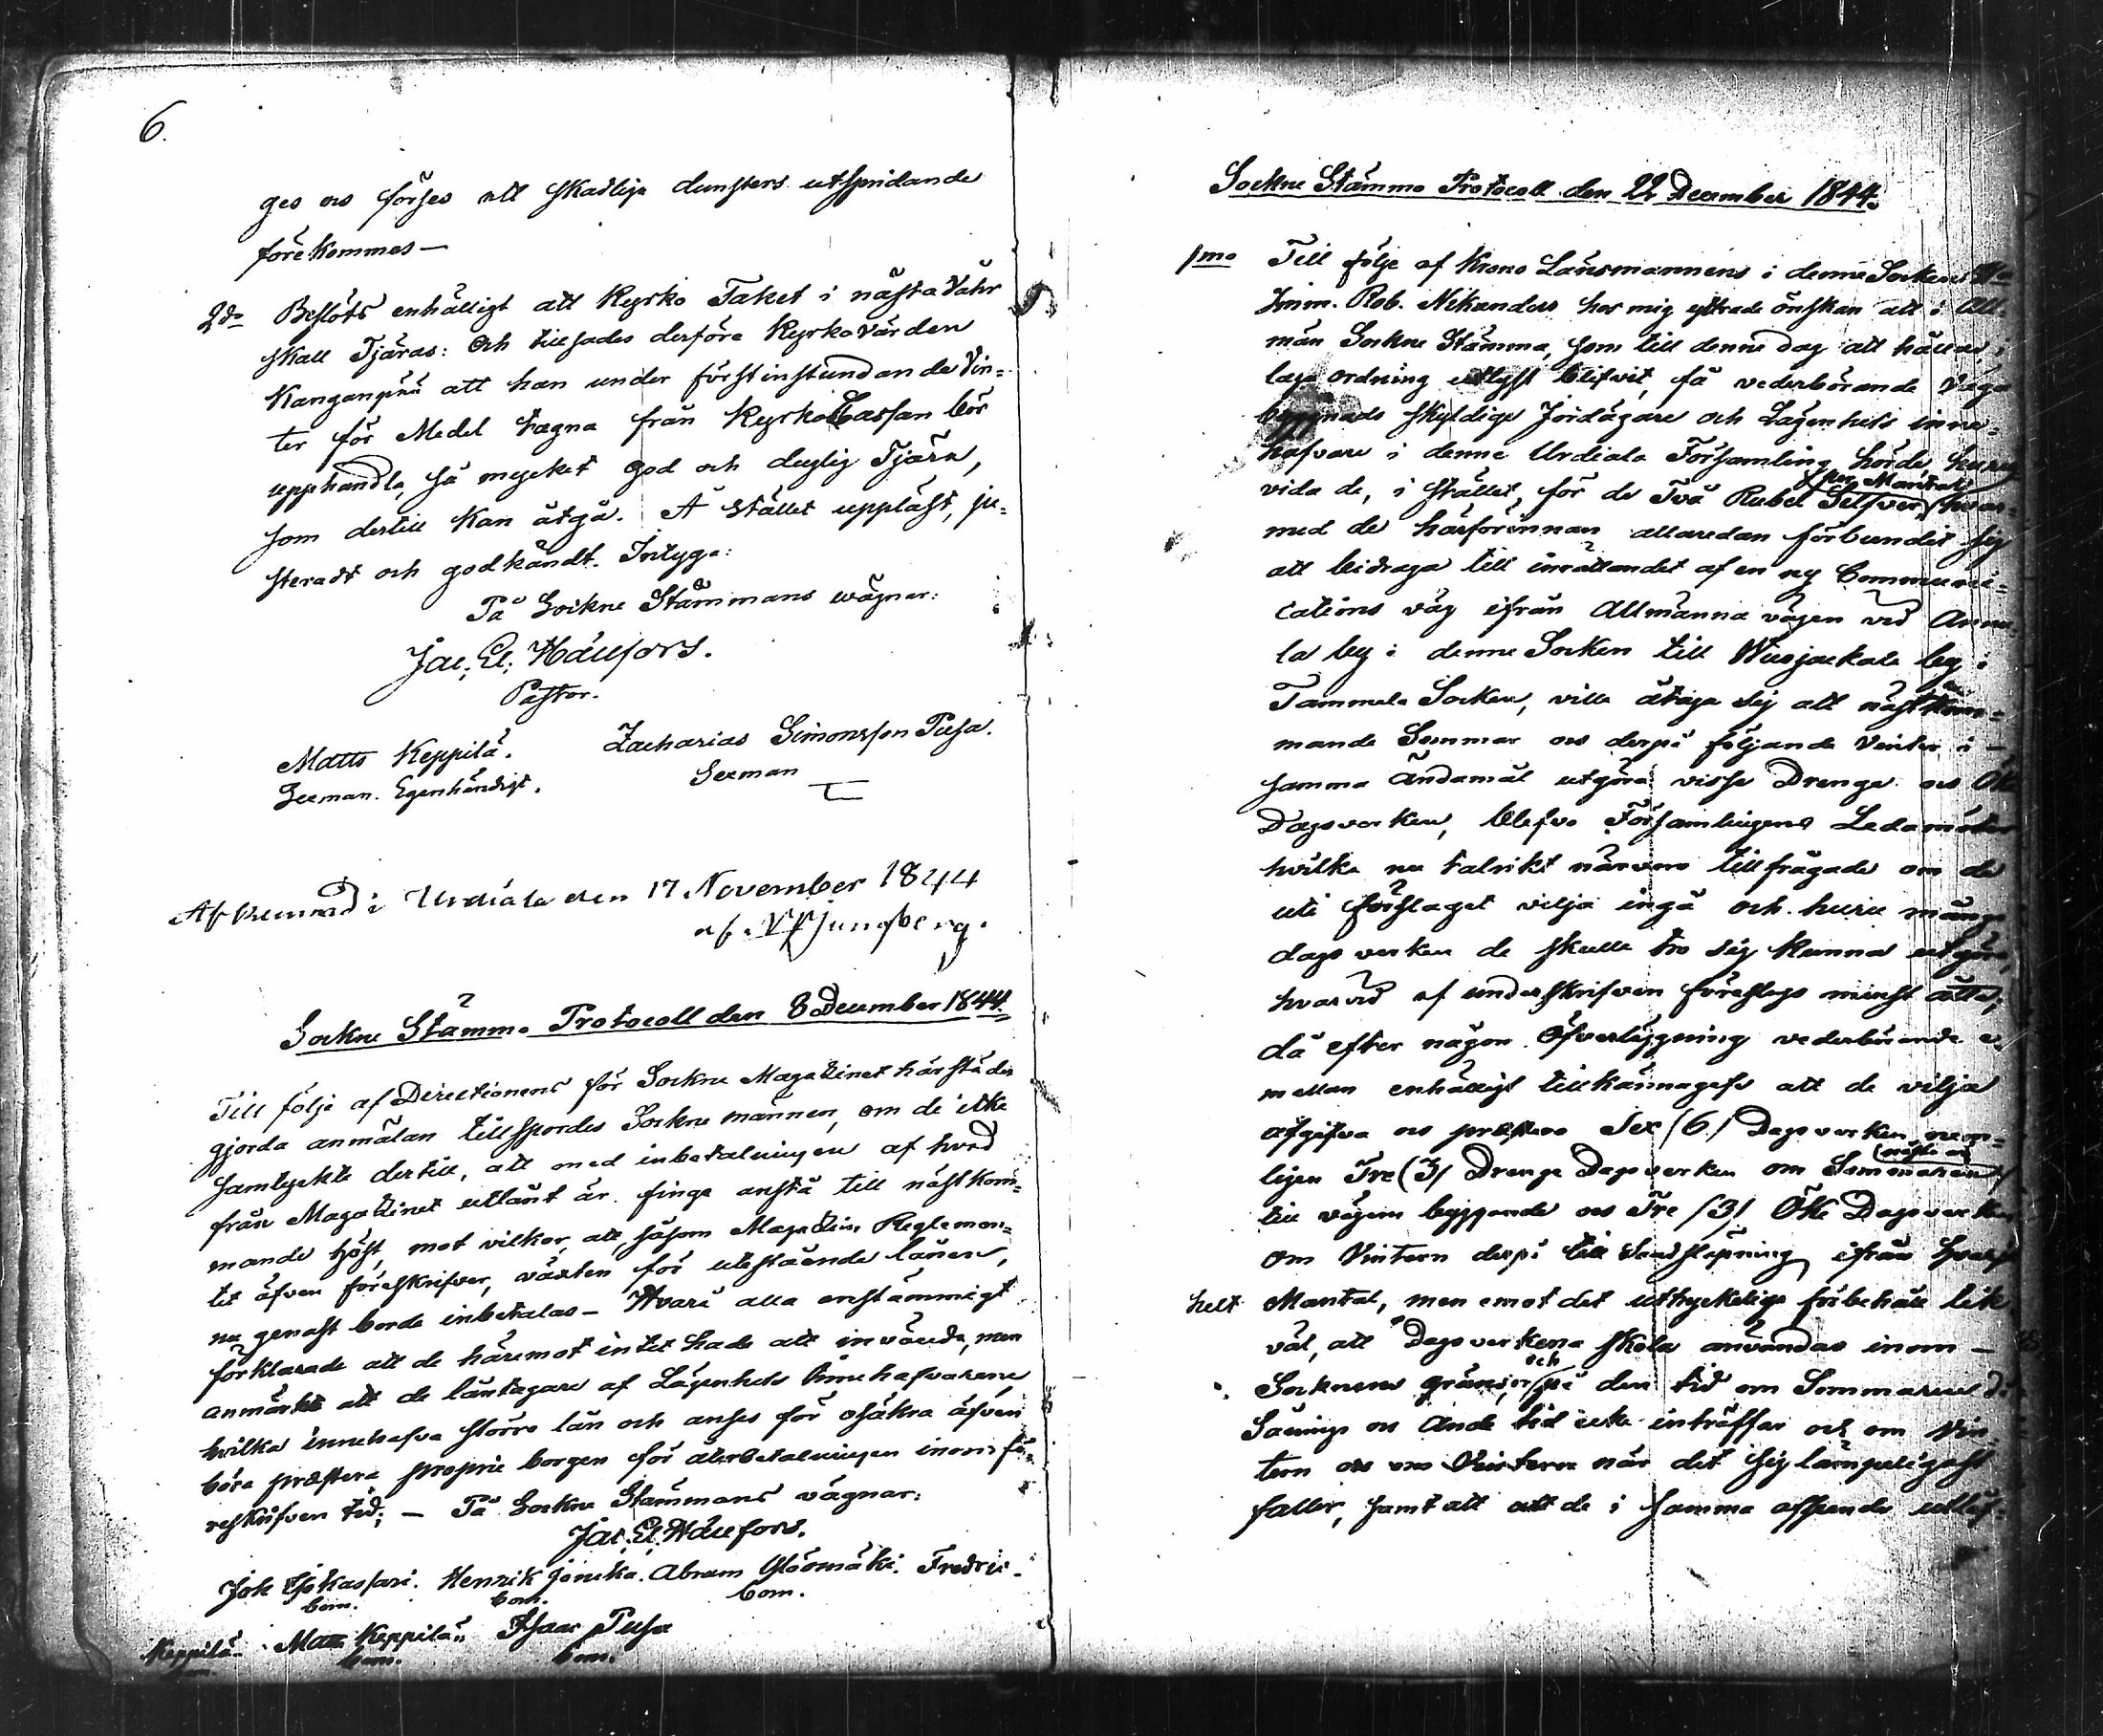 6.
ges och förses att skadliga dunsters utspridande
förekommes —
2do Beslöts enhälligt att Kyrko Taket i nästa Vahr
skall Tjäras: Och tillsades derföre Kyrkovärden
Kanganpää att han under förstinstundande Vin=
ter för Medel tagna från Kyrko Cassan bör
upphandla, så mycket god och duglig Tjära,
som dertill kan åtgå. À Stället uppläst, ju=
steradt och godkändt. Intyga:
På Sockne Stämmans wägnar:
Jac. El. Hällfors.
Pastor.
Matts Keppilä. Zacharias Simonsson Pusa.
Sexman. Egenhändigt. Sexman
Afkunnad i Urdiala den 17 November 1844
af Ljungberg.
Sockne Stämmo Protocoll den 8 December 1844.
Till följe af Directionens för Sockne Magazinet härstädes
gjorda anmälan tillspordes Sockne männen, om de icke
samtyckte dertill, att med inbetalningen af hvad
från Magazinet utlånt är finge anstå till nästkom=
mande höst, mot vilkor, att, såsom Magazins Reglemen=
tet äfven föreskrifver, växten för utestående lånen,
nu genast borde inbetalas — Hvari alla enstämmigt
förklarade att de häremot intet hade att invända, men
anmärkte att de låntagare af Lägenhets Innehafvarene
hvilka innehafva större lån och anses för osäkra äfven
böra præstera proprie borgen för återbetalningen inom fö=
reskrifven tid; — På Sockne Stämmans vägnar:
Jac. El. Hällfors.
Joh. Henrik Jonika. Abram Fredric
bom. bom. bom.
Keppilä Matts Keppilä Isaac Pusa
bom. bom.
Sockne Stämmo Protocoll den 22 December 1844.
1mo Till följe af Krono Länsmannens i denne Socken Hr
Imm. Rob. Nikanders hos mig yttrade önskan att i all=
män Sockne Stämma, som till denne dag att hållas i
laga ordning utlyst blifvit, få vederbörande Väga
byggnads skyldige Jordägare och Lägenhets inne=
hafvare i denne Urdiala Församling hörde, huru
vida de, i stället, för de Två Rubel Silfver per Mantal hvar=
med de härförinnan allaredan förbundit sig
att bidraga till inrättandet af en ny Communi=
cations väg ifrån Allmänna vägen vid Anna=
la by i denne Socken till Wiusjackala by i
Tammela Socken, ville åtaga sig att nästkom=
mande Sommar och derpå följande Vinter i —
samma ändamål utgöra visse Drenge och Öke
Dagsverken, blefvo Församlingens Ledamöter
hvilka nu talrikt närvoro tillfrågade om de
uti förslaget vilja ingå och huru många
dagsverken de skulle tro sig kunna utgöra,
hvarvid af underskrifven föreslogs minst åtta,
då efter någon Öfverläggning vederbörande e=
mellan enhälligt tillkännagafs att de vilja
afgifva och præstera Sex (6) Dagsverken nem=
ligen Tre (3) Drenge Dagsverken om Sommaren
till vägens byggande och Tre (3) Öke Dagsverken
om Vintern derpå till Sandsläpning ifrån hvarje
helt Mantal, men emot det uttryckeliga förbehåll lik
väl, att Dagsverkena skola användas inom —
Socknens gränser och på den tid om Sommaren då
Sånings och Ande tid icke inträffar och om Vin
tern när det sig lämpeligast
faller, samt att att de i samma afseende utlof=